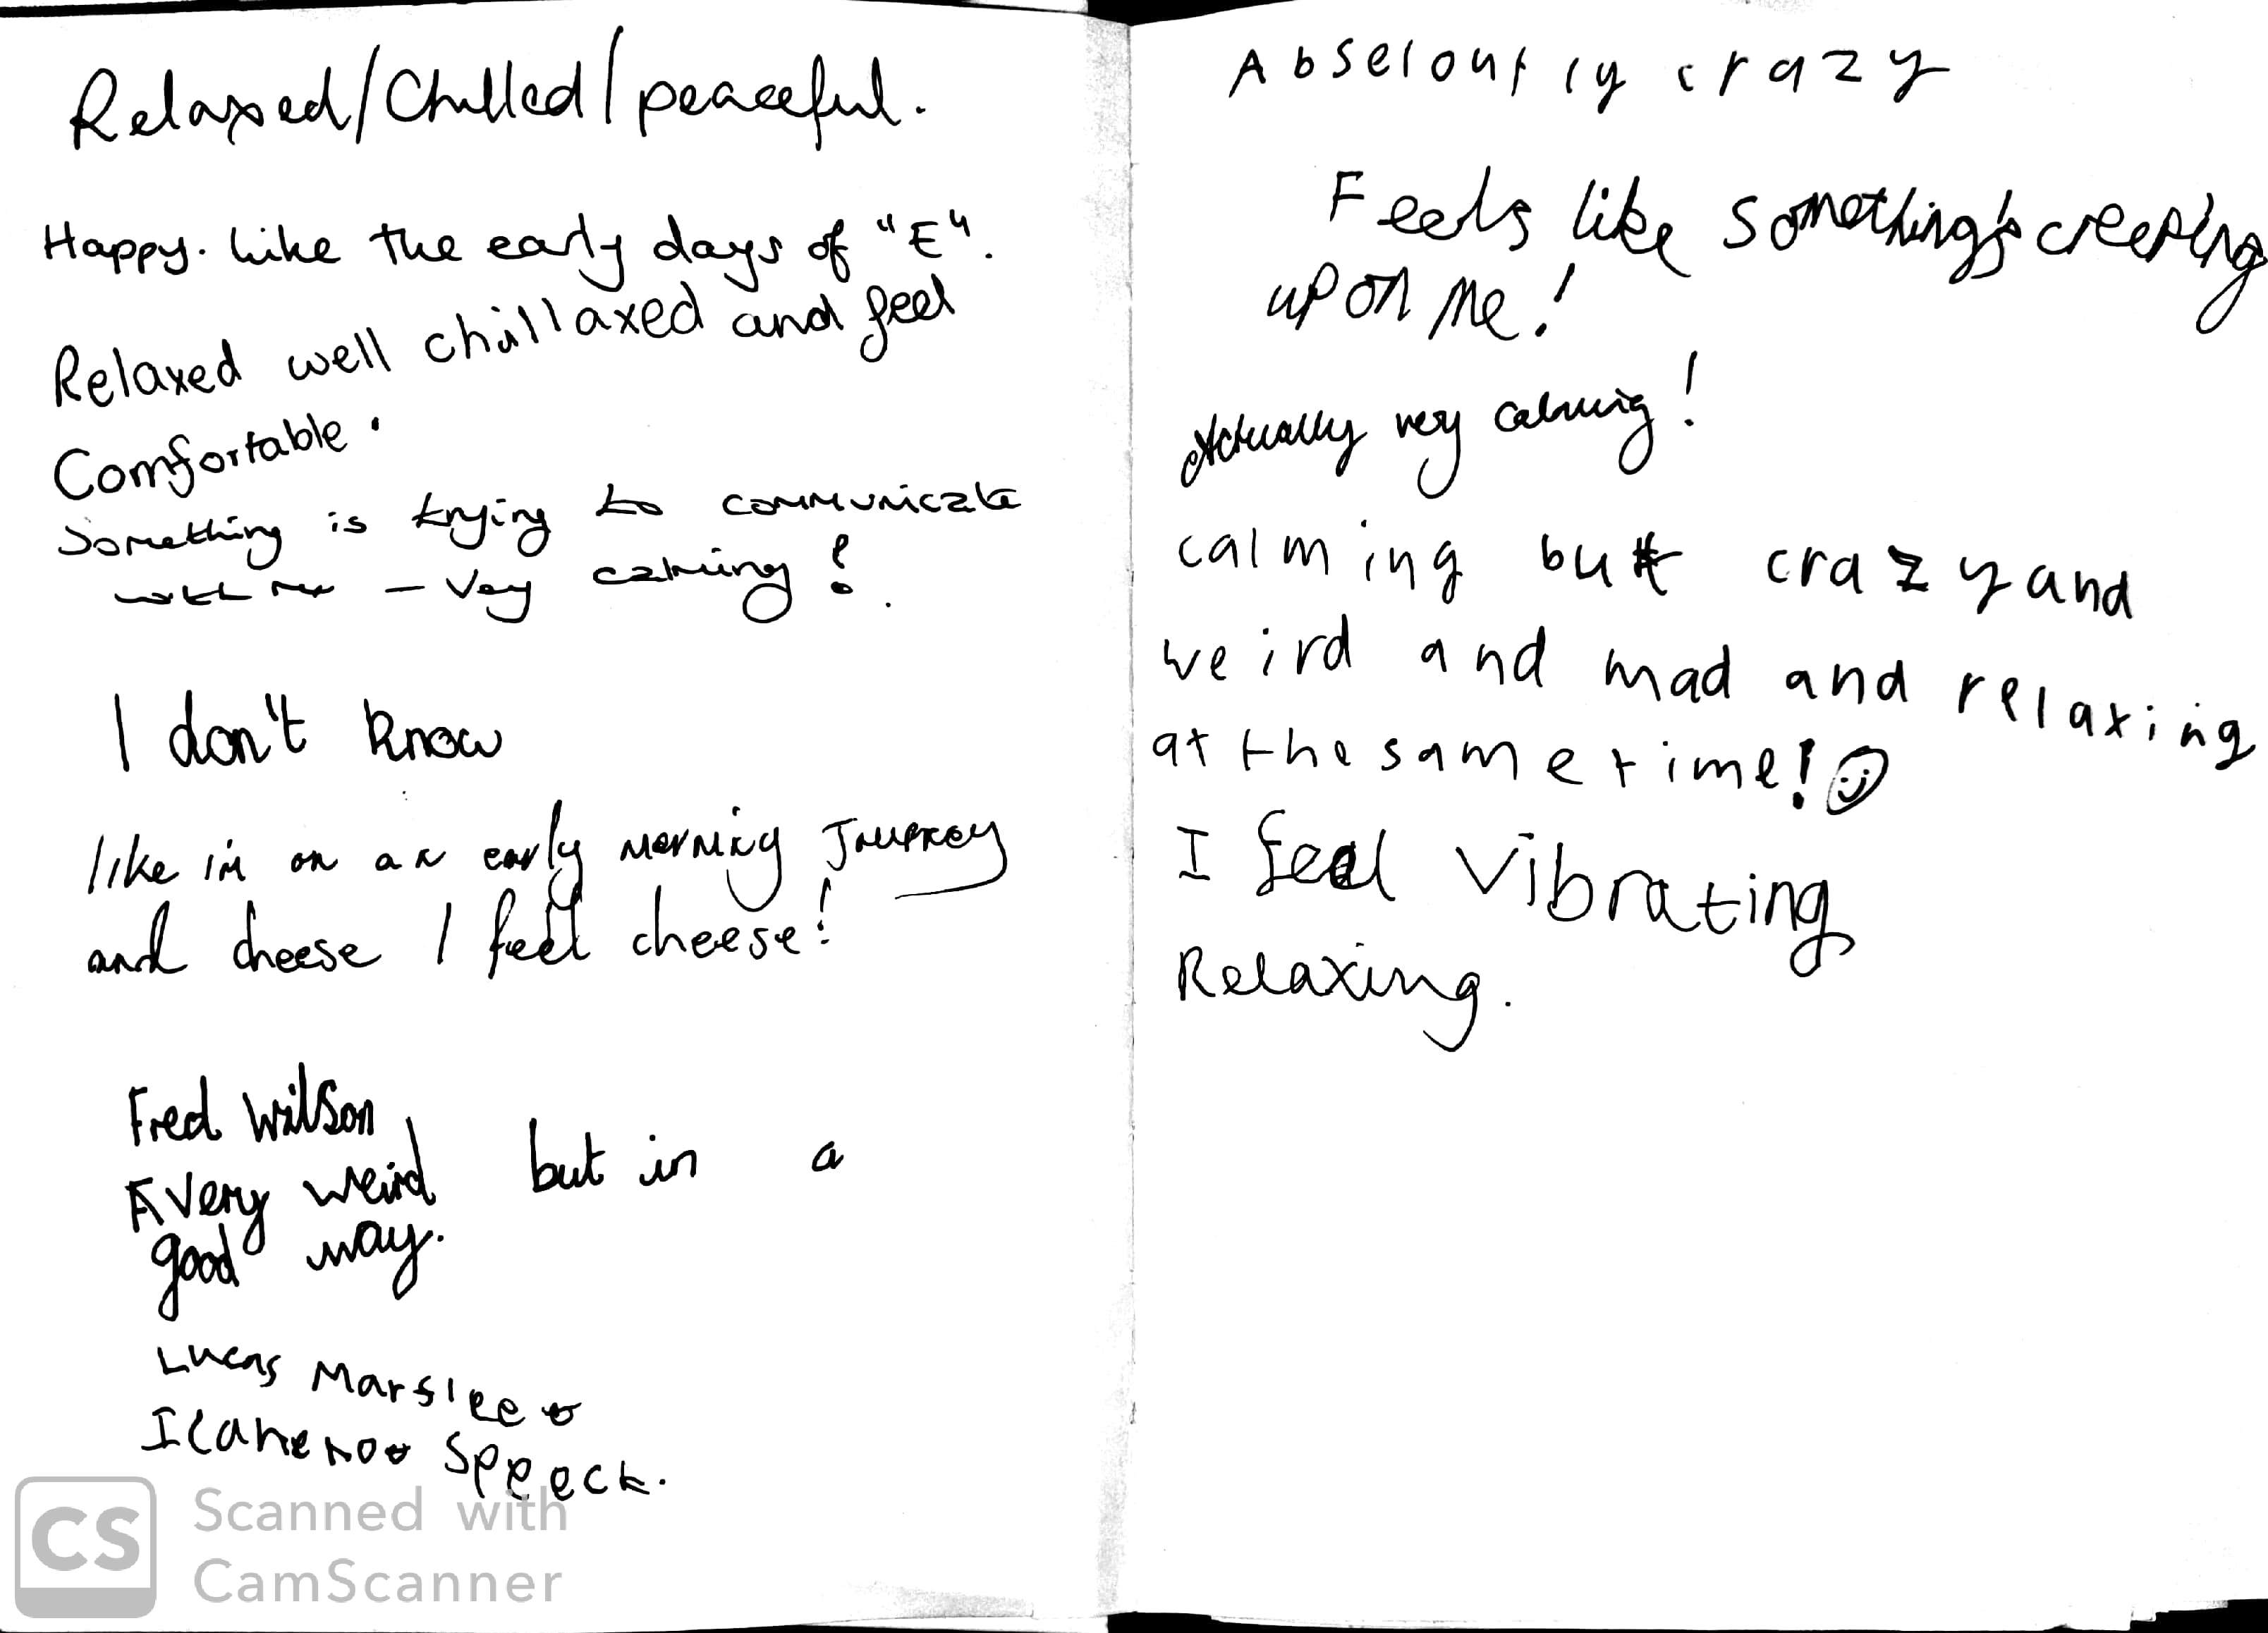 Relaxed/Chilled/peaceful.
Happy. Like the early days of "E".
Relaxed well chillaxed and feel
Comfortable.
Something is trying to communicate
with me – Very calming!
I don't know
like im on an early morning Journey
and cheese I feel cheese!
Fred Wilson
A very weird but in a
good way.
Lucas
Speeck.
Scanned with
CamScanner
CS
Abseloutly crazy
Feels like something's creeping
up on me!
Actually very calming!
calming but crazy and
weird and mad and relaxing
at the same time!
I feel vibrating
Relaxing.